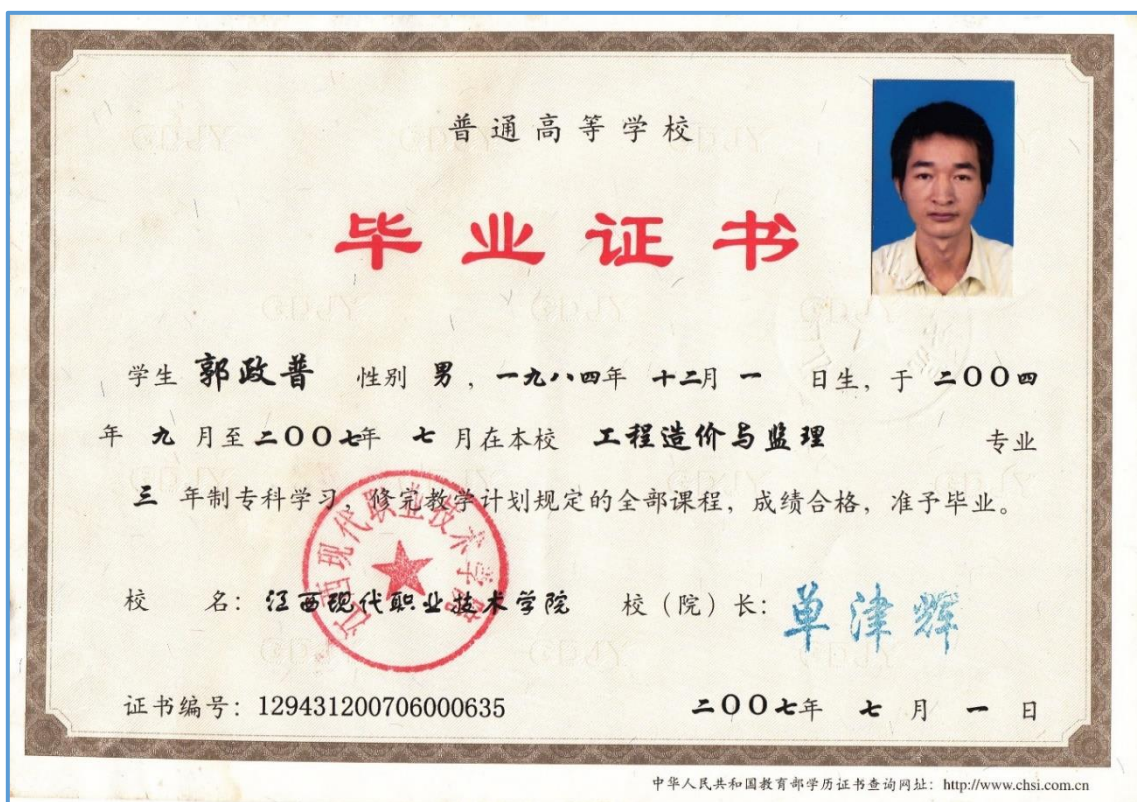 普通高等学校
毕业证书
学生 郭政普 性别 男，一九八四年 十二月 一 日生，于 二〇〇四
年 九 月至二〇〇七年 七 月在本校 工程造价与监理 专业
三 年制专科学习，修完教学计划规定的全部课程，成绩合格，准予毕业。
江西现代职业技术学院
校 名：江西现代职业技术学院 校（院）长：单津辉
证书编号：129431200706000635 二〇〇七年 七 月 一 日
中华人民共和国教育部学历证书查询网址：http://www.chsi.com.cn